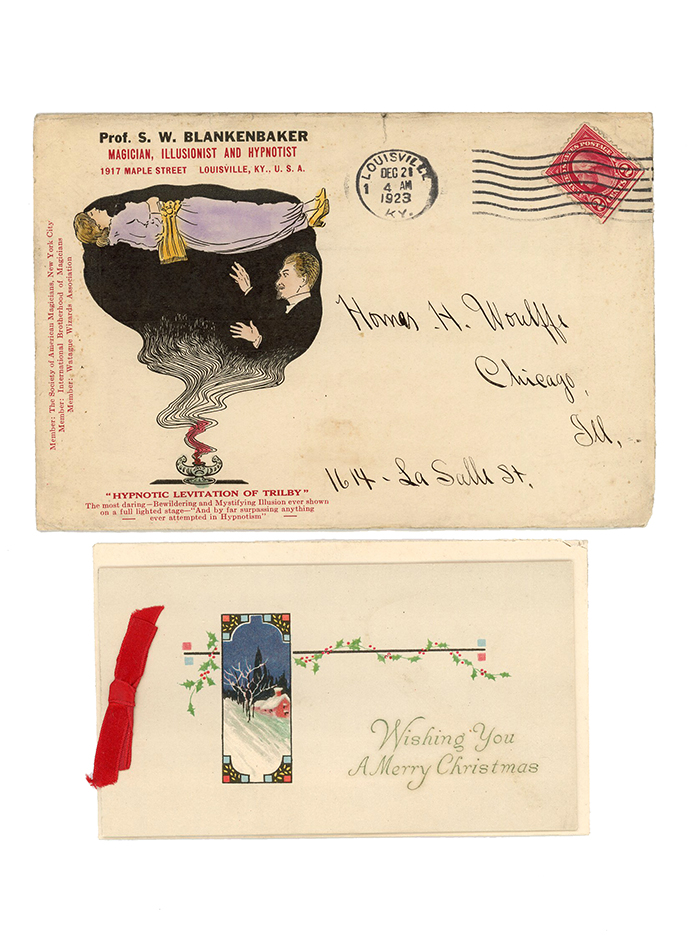 Prof. S. W. BLANKENBAKER
MAGICIAN, ILLUSIONIST AND HYPNOTIST
1917 MAPLE STREET LOUISVILLE, KY., U. S. A.
Member: The Society of American Magicians, New York City
Member: International Brotherhood of Magicians
Member: Watague Wizards Association
LOUISVILLE
1
DEC 21
4 AM
1923
KY.
Homer H. Woulffe
Chicago,
Ill.
1614 - La Salle St.
"HYPNOTIC LEVITATION OF TRILBY"
The most daring—Bewildering and Mystifying Illusion ever shown
on a full lighted stage—"And by far surpassing anything
ever attempted in Hypnotism"
Wishing You
A Merry Christmas